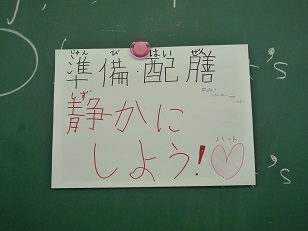 じゅん び はい ぜん
準備・配膳
しず
静かに
しよう!
ハート
's
's